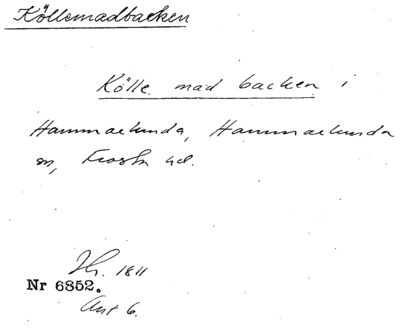 Köllemadbacken
Kölle mad backen i
Hammarlunda, Hammarlunda
sn, Frosta hd.
1811
Nr 6852.
6.